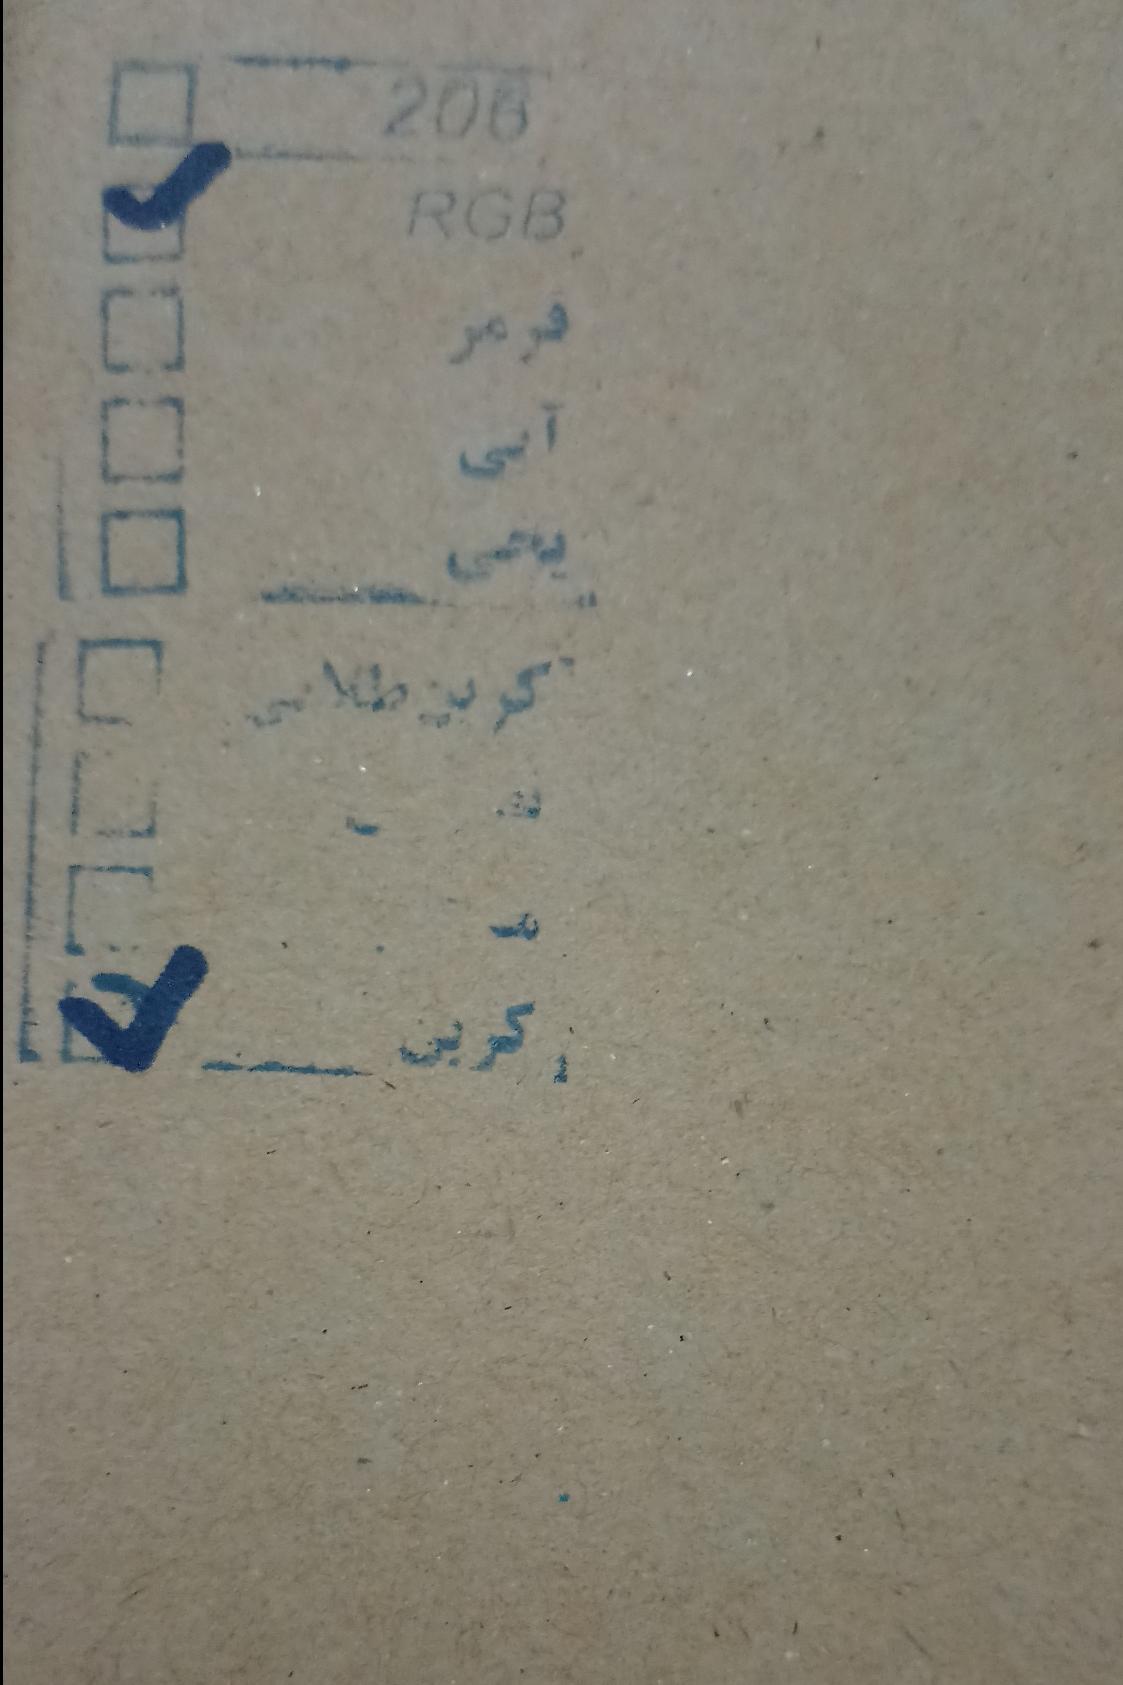 206
RGB
قرمز
آبی
یخی
کربن طلایی
کربن